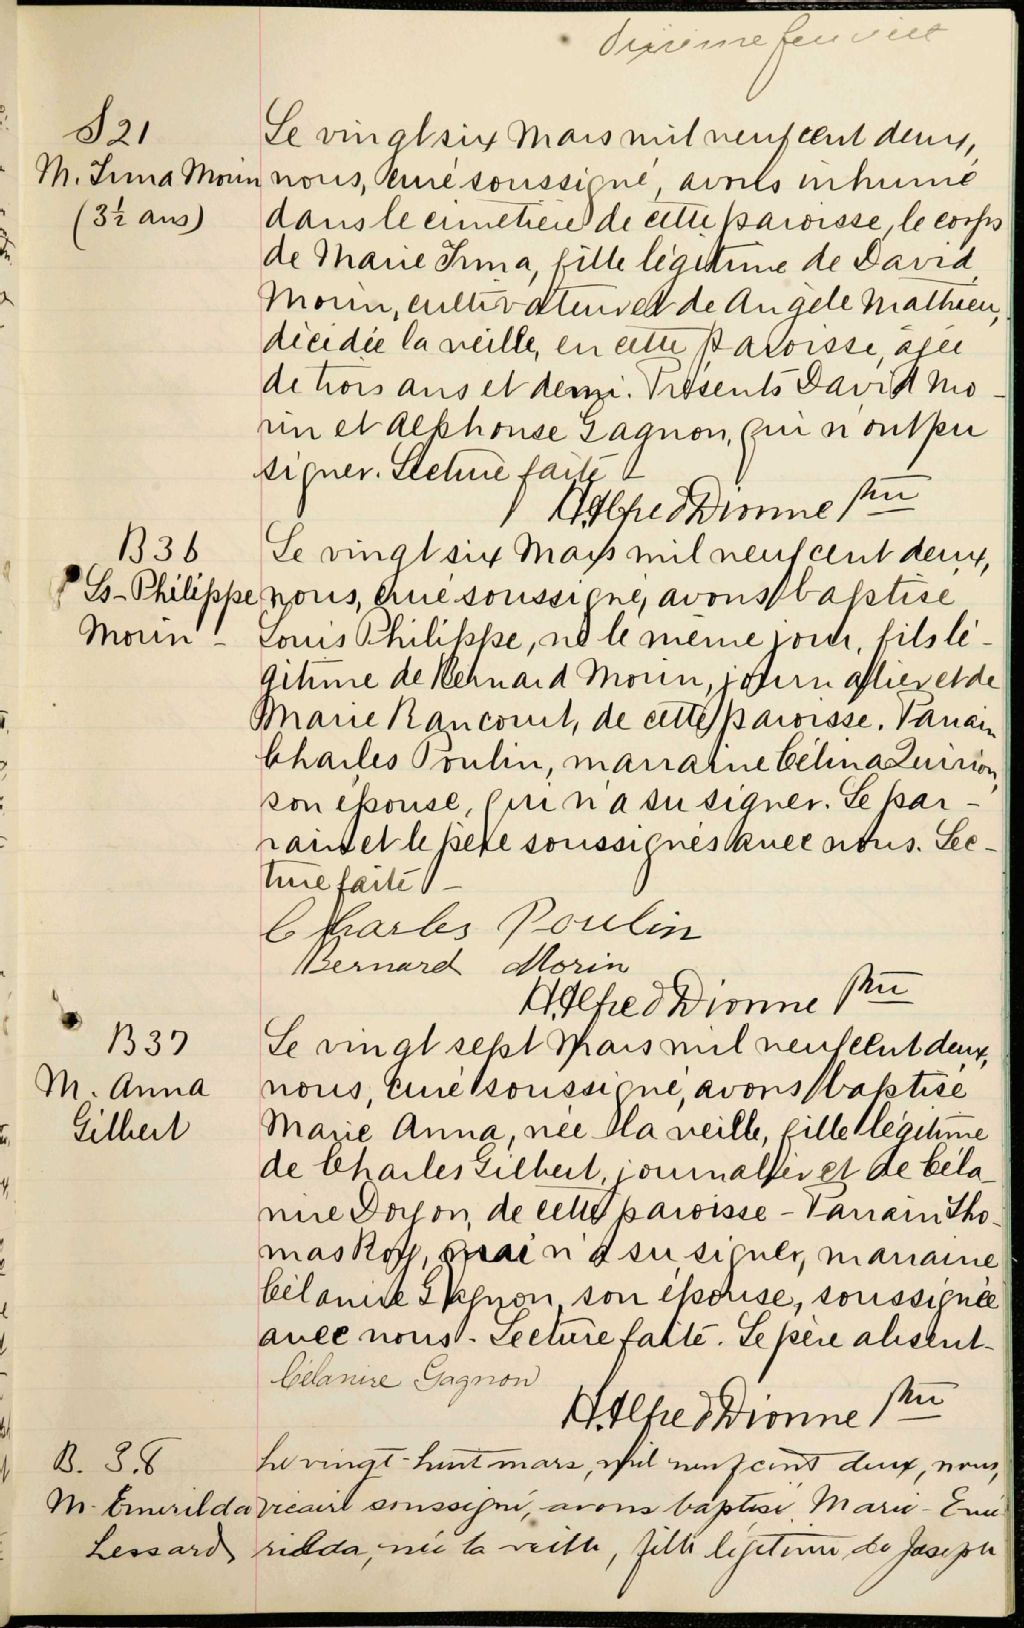 dixième feuillet
S 21
M. Irma Morin
(3½ ans)
Le vingt six Mars mil neuf cent deux,
nous, curé soussigné, avons inhumé
dans le cimetière de cette paroisse, le corps
de Marie Irma, fille légitime de David
Morin, cultivateur et de Angèle Mathieu,
décédée la veille, en cette paroisse, âgée
de trois ans et demi. Présents David Mo-
rin et Alphonse Gagnon, qui n'ont pu
signer. Lecture faite -
H. Alfred Dionne Ptre
B 36
Ls-Philippe
Morin -
Le vingt six Mars mil neuf cent deux,
nous, curé soussigné, avons baptisé
Louis Philippe, né le même jour, fils lé-
gitime de Bernard Morin, journalier et de
Marie Rancourt, de cette paroisse. Parrain
Charles Poulin, marraine Célina Quirion,
son épouse, qui n'a su signer. Le par-
rain et le père soussignés avec nous. Lec-
ture faite -
Charles Poulin
Bernard Morin
H. Alfred Dionne Ptre
B 37
M. Anna
Gilbert
Le vingt sept Mars mil neuf cent deux,
nous, curé soussigné, avons baptisé
Marie Anna, née la veille, fille légitime
de Charles Gilbert, journalier et de Céla-
nire Doyon, de cette paroisse - Parrain Tho-
mas Roy, qui n'a su signer, marraine
Célanire Gagnon, son épouse, soussignée
avec nous - Lecture faite. Le père absent -
Célanire Gagnon
H. Alfred Dionne Ptre
B. 38
M. Emérilda
Lessard
Le vingt-huit mars, mil neuf cent deux, nous,
vicaire soussigné, avons baptisé Marie-Emé
rilda, née la veille, fille légitime de Joseph